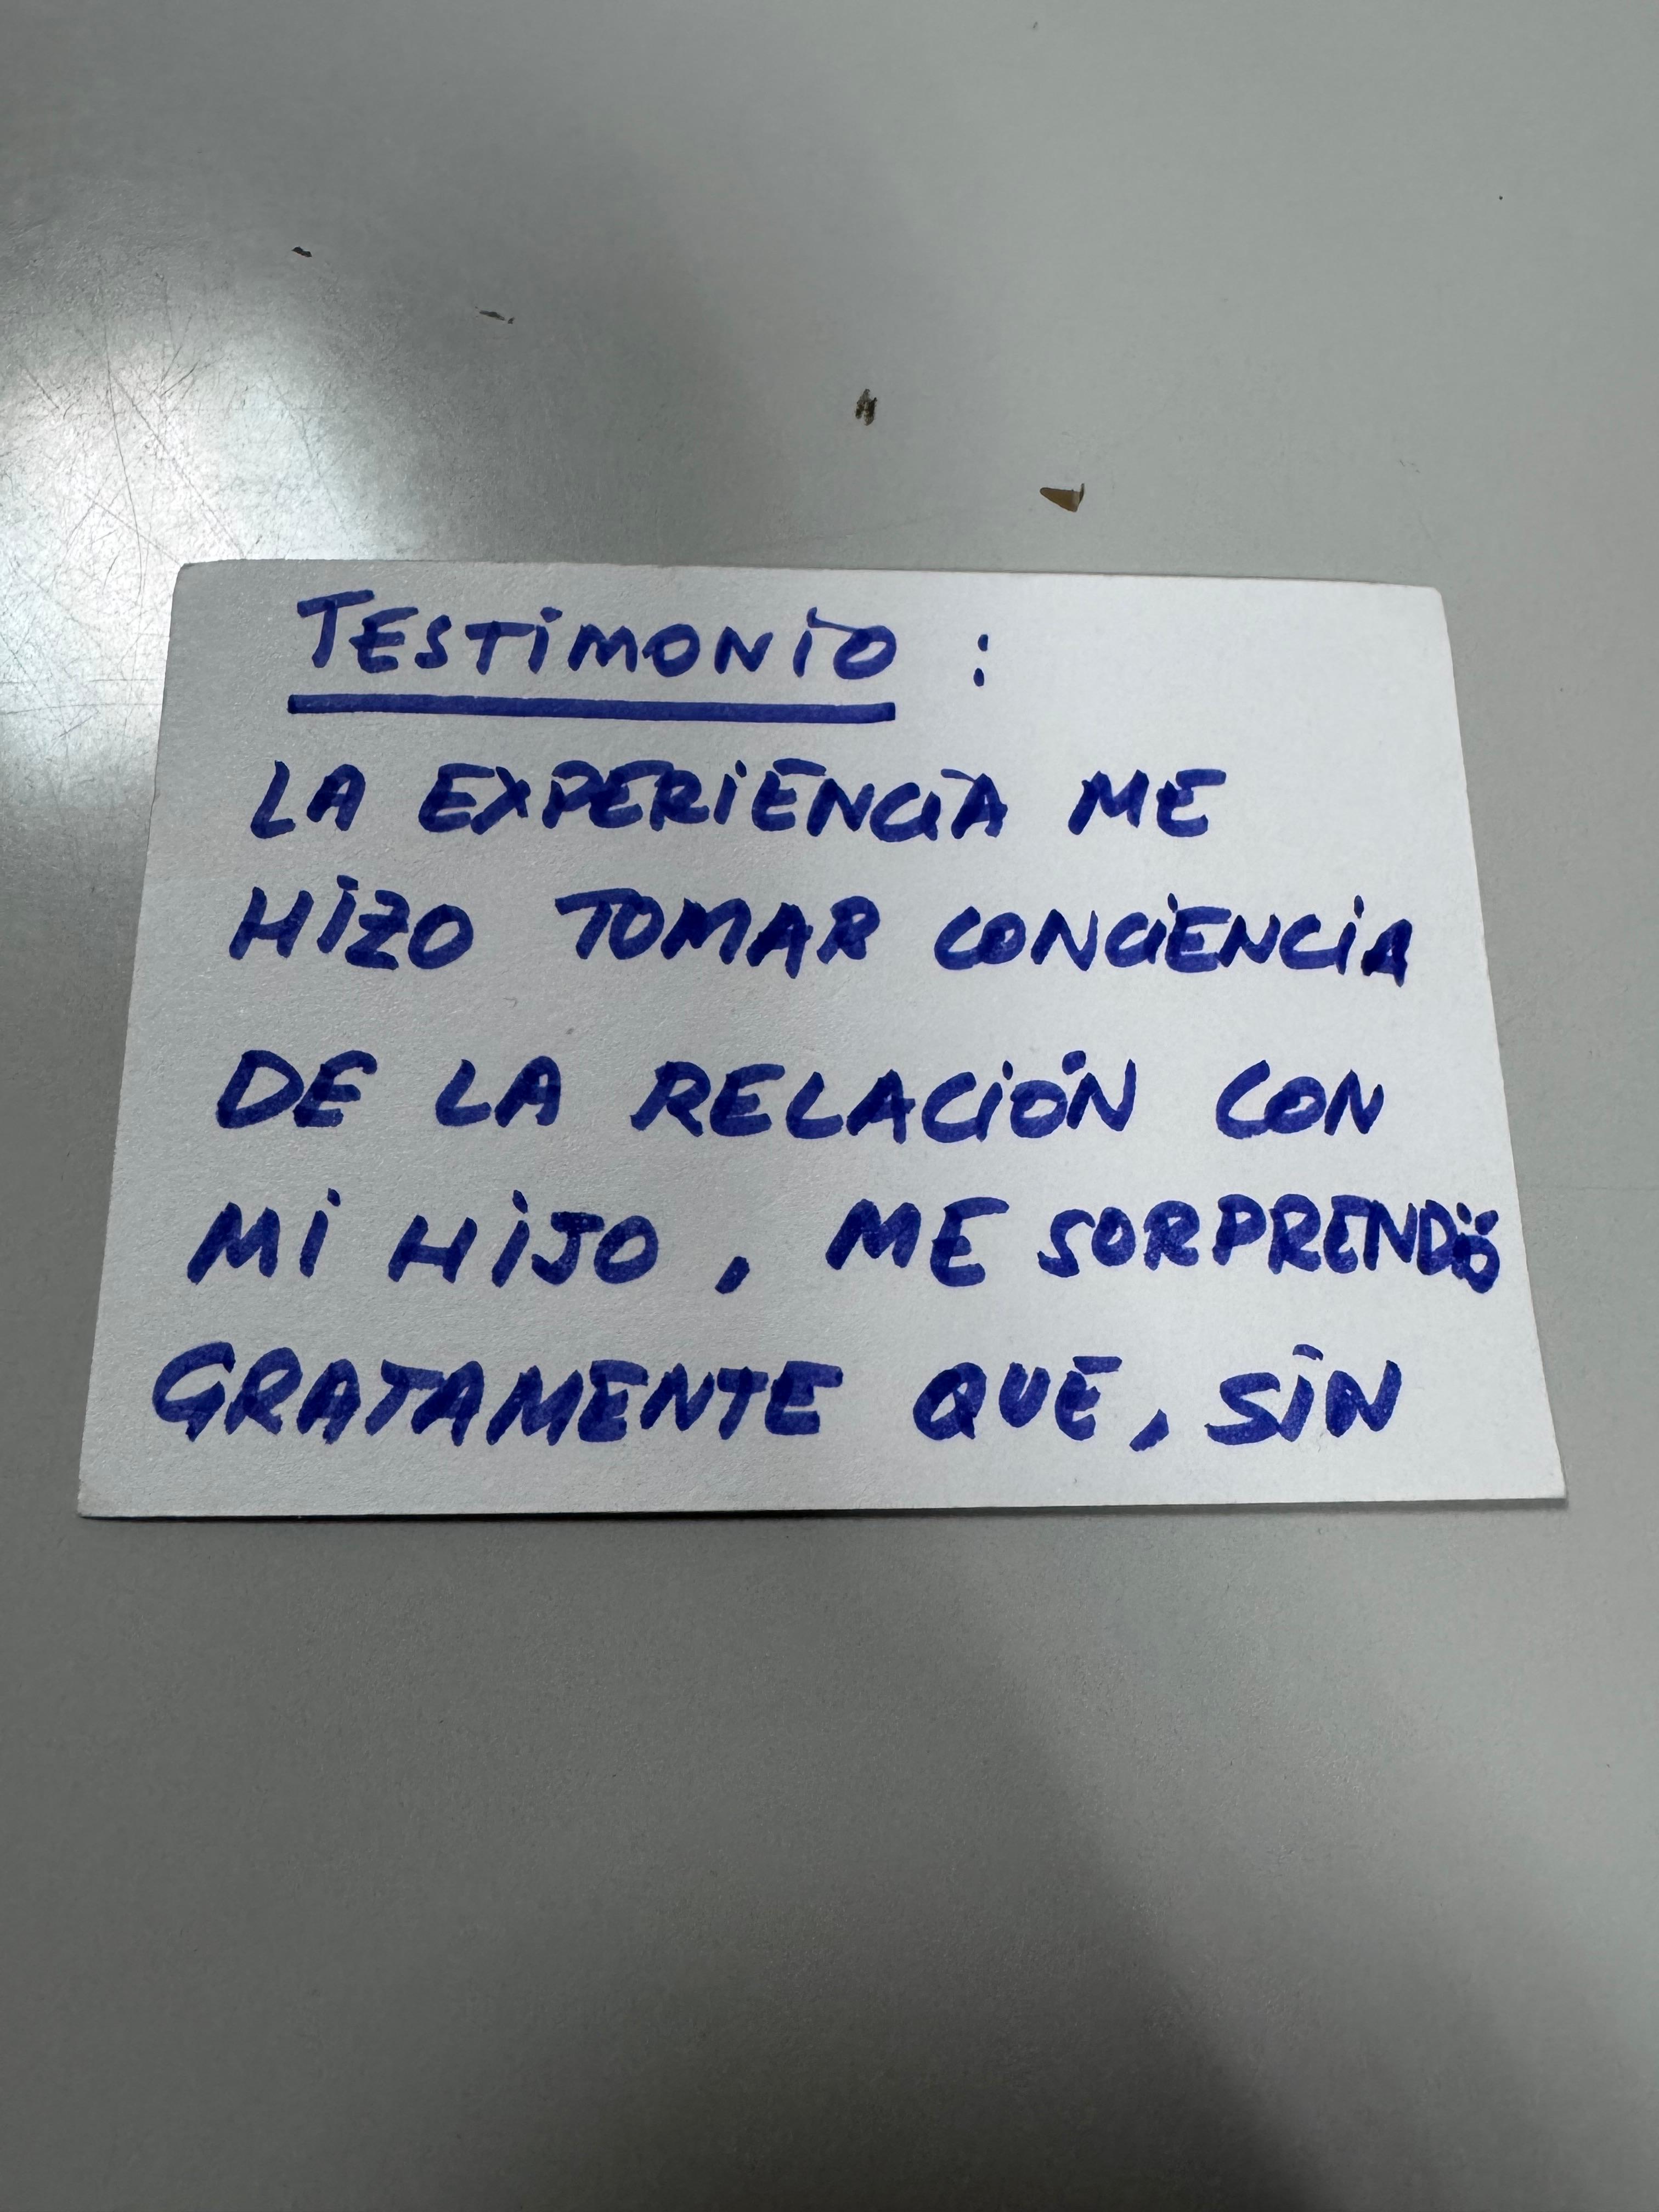 TESTIMONIO :
LA EXPERIENCIA ME
HIZO TOMAR CONCIENCIA
DE LA RELACIÓN CON
MI HIJO, ME SORPRENDIÓ
GRATAMENTE QUE, SIN